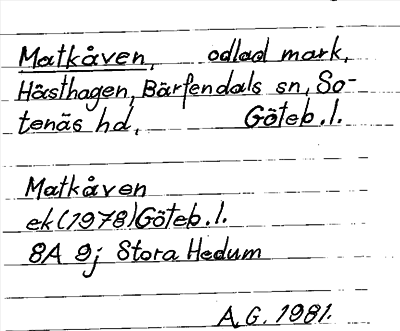 Matkåven, odlad mark,
Hästhagen, Bärfendals sn, So-
tenäs hd, Göteb. l.
Matkåven
ek (1978) Göteb. l.
8A 9j Stora Hedum
A. G. 1981.